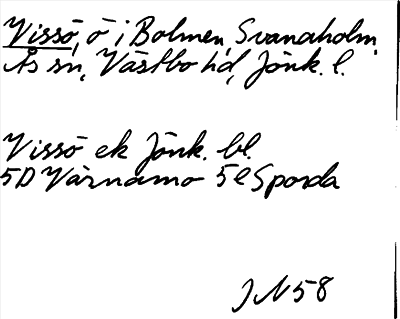 Vissö, ö i Bolmen, Svanaholm
Ås sn, Västbo hd, Jönk. l.
Vissö ek Jönk. bl.
5D Värnamo 5e Sporda
J N 58